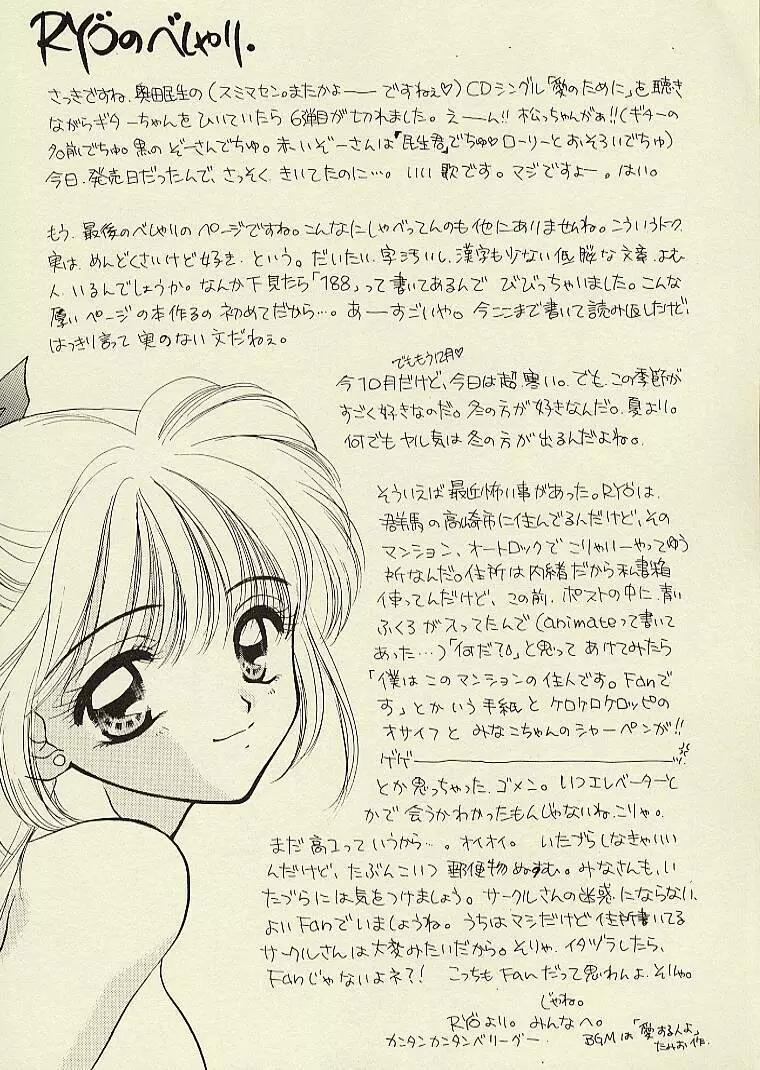 RYÖのべしゃり.
さっきですね、奥田民生の(スミマセン。またかよ──ですねぇ♡)CDシングル「愛のために」を聴き
ながらギターちゃんをひいていたら6弾目が切れました。えーん!!松っちゃんがぁ!!(ギターの
名前でちゅ。黒のぞーさんでちゅ。赤いぞーさんは「民生君」でちゅ♡ローリーとおそろいでちゅ)
今日、発売日だったんで、さっそくきいてたのに…。いい歌です。マジですよー。はい。
もう、最後のべしゃりのページですね。こんなにしゃべってんのも他にありませんね。こういうトーク
実は、めんどくさいけど好き.という。だいたい字汚いし、漢字も少ない低脳な文章、よむ
人、いるんでしょうか。なんか下見たら「188」って書いてあるんでびびっちゃいました。こんな
厚いページの本作るの初めてだから…。あーーすごいや。今ここまで書いて読み返したけど、
はっきり言って実のない文だねぇ。
でももう12月♡
今10月だけど、今日は超寒い。でも、この季節が
すごく好きなのだ。冬の方が好きなんだ。夏より。
何でもヤル気は冬の方が出るんだよね。
そういえば最近怖い事があった。RYÖは、
群馬の高崎市に住んでるんだけど、その
マンション、オートロックでこりゃいーやってゆう
所なんだ。住所は内緒だから私書箱
使ってんだけど、この前、ポストの中に青い
ふくろが入ってたんで(animateって書いて
あった…)「何だ?」と思ってあけてみたら
「僕はこのマンションの住人です。Fanで
す」とかいう手紙とケロケロケロッピの
オサイフとみなこちゃんのシャーペンが!!
ゲゲ──
とか思っちゃった、ゴメン。いつエレベーターと
かで会うかわかったもんじゃないね、こりゃ。
まだ高2っていうから…。オイオイ。いたづらしなきゃいい
んだけど、たぶんこいつ郵便物ぬすむ。みなさんも、い
たづらには気をつけましょう。サークルさんの迷惑にならない、
よいFanでいましょうね。うちはマシだけど住所書いてる
サークルさんは大変みたいだから。そりゃ、イタヅラしたら、
Fanじゃないよネ?! こっちもFanだって思わんよ、そりゃ。
じゃね。
RYÖより。みんなへ。
カンタンカンタンベリーグー.
BGMは「愛する人よ」
たみお作.